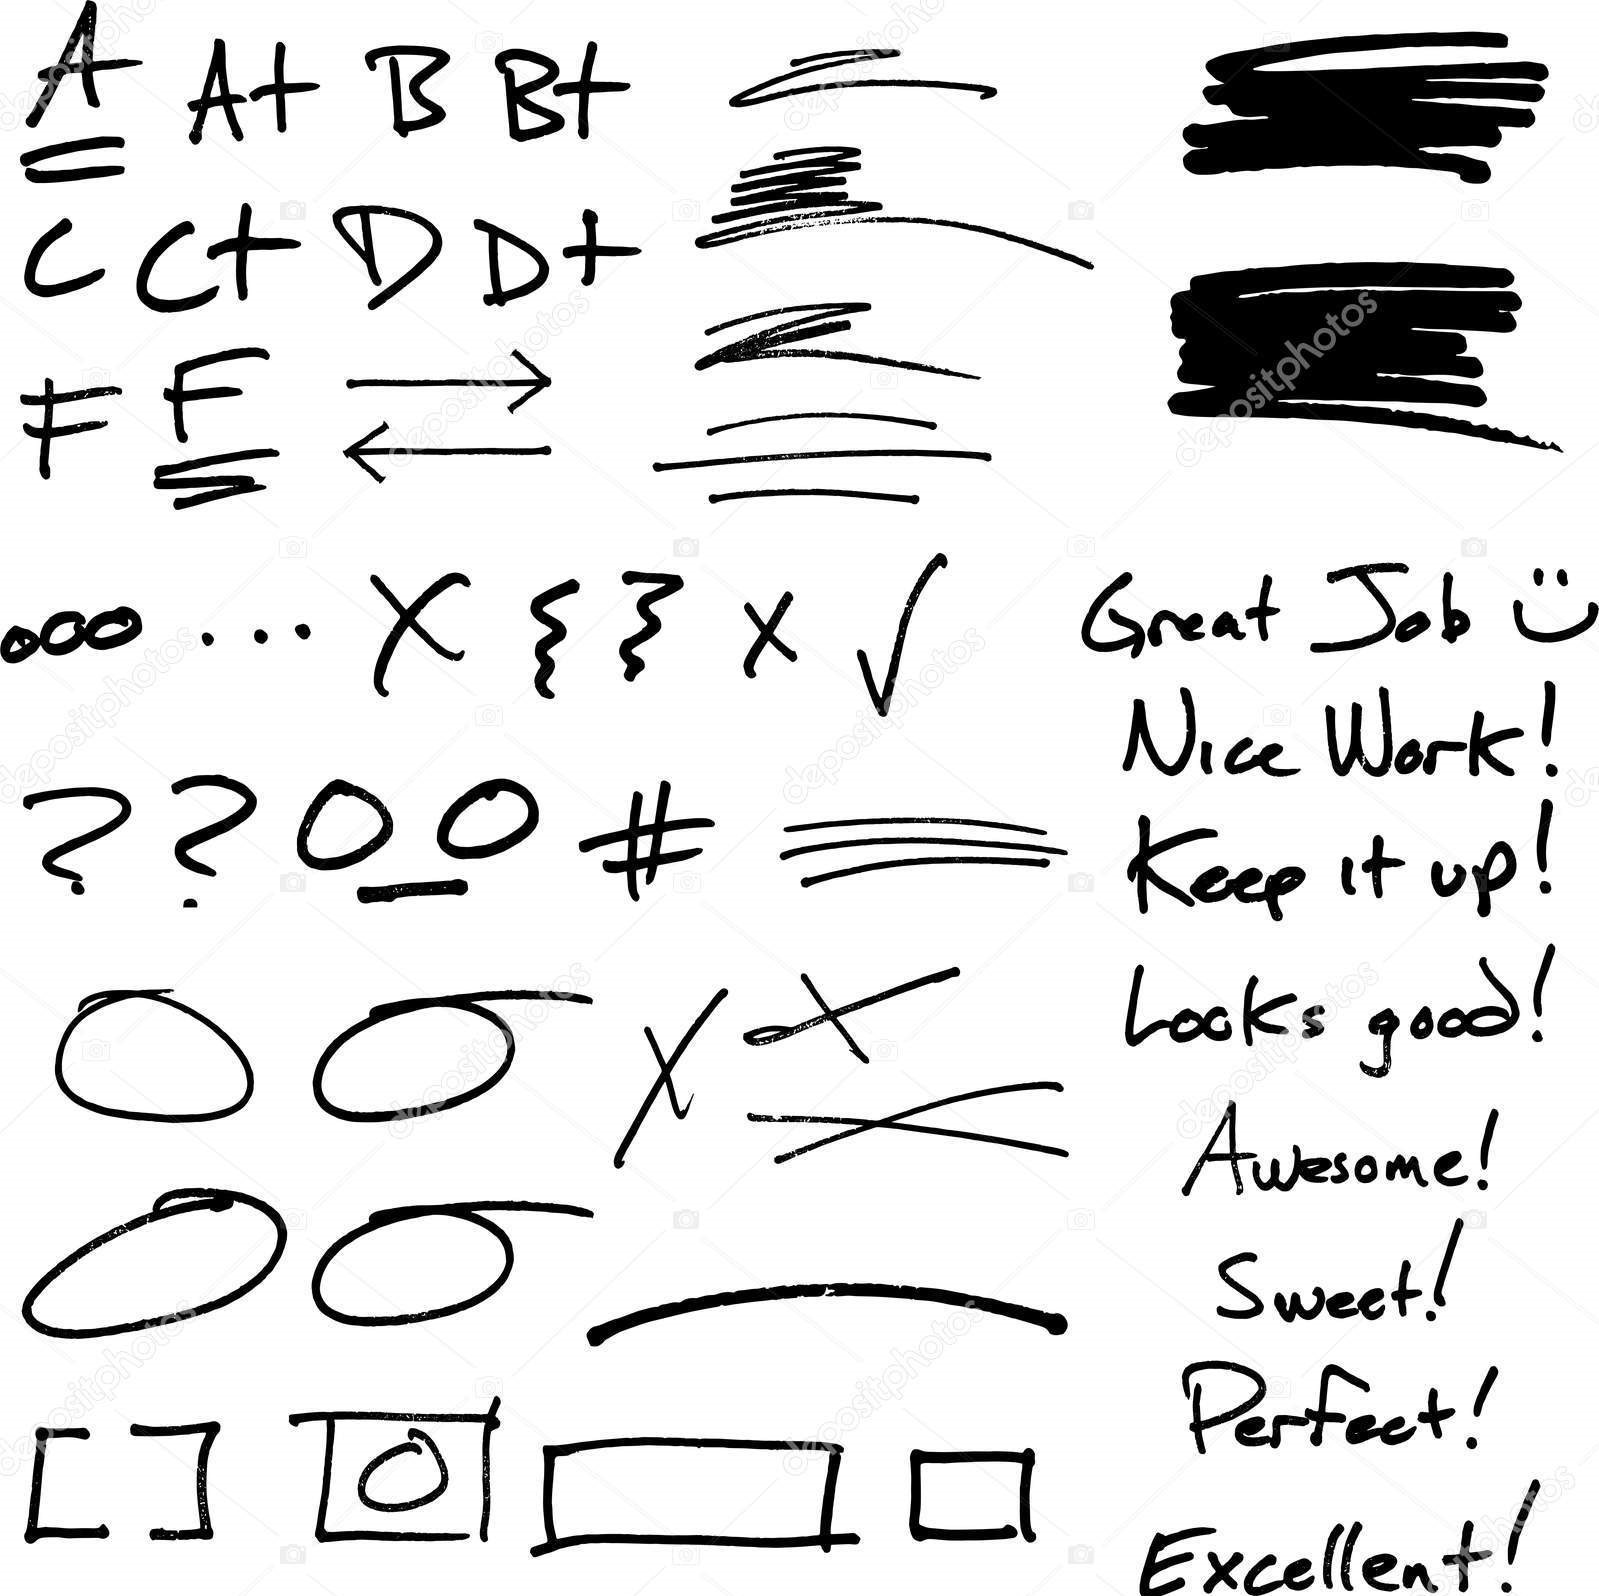 A A+ B B+
C C+ D D+
F F
ooo ... X { } x √
? ? O O #
Great Job
Nice Work!
Keep it up!
Looks good!
Awesome!
Sweet!
Perfect!
Excellent!
[ ]
depositphotos